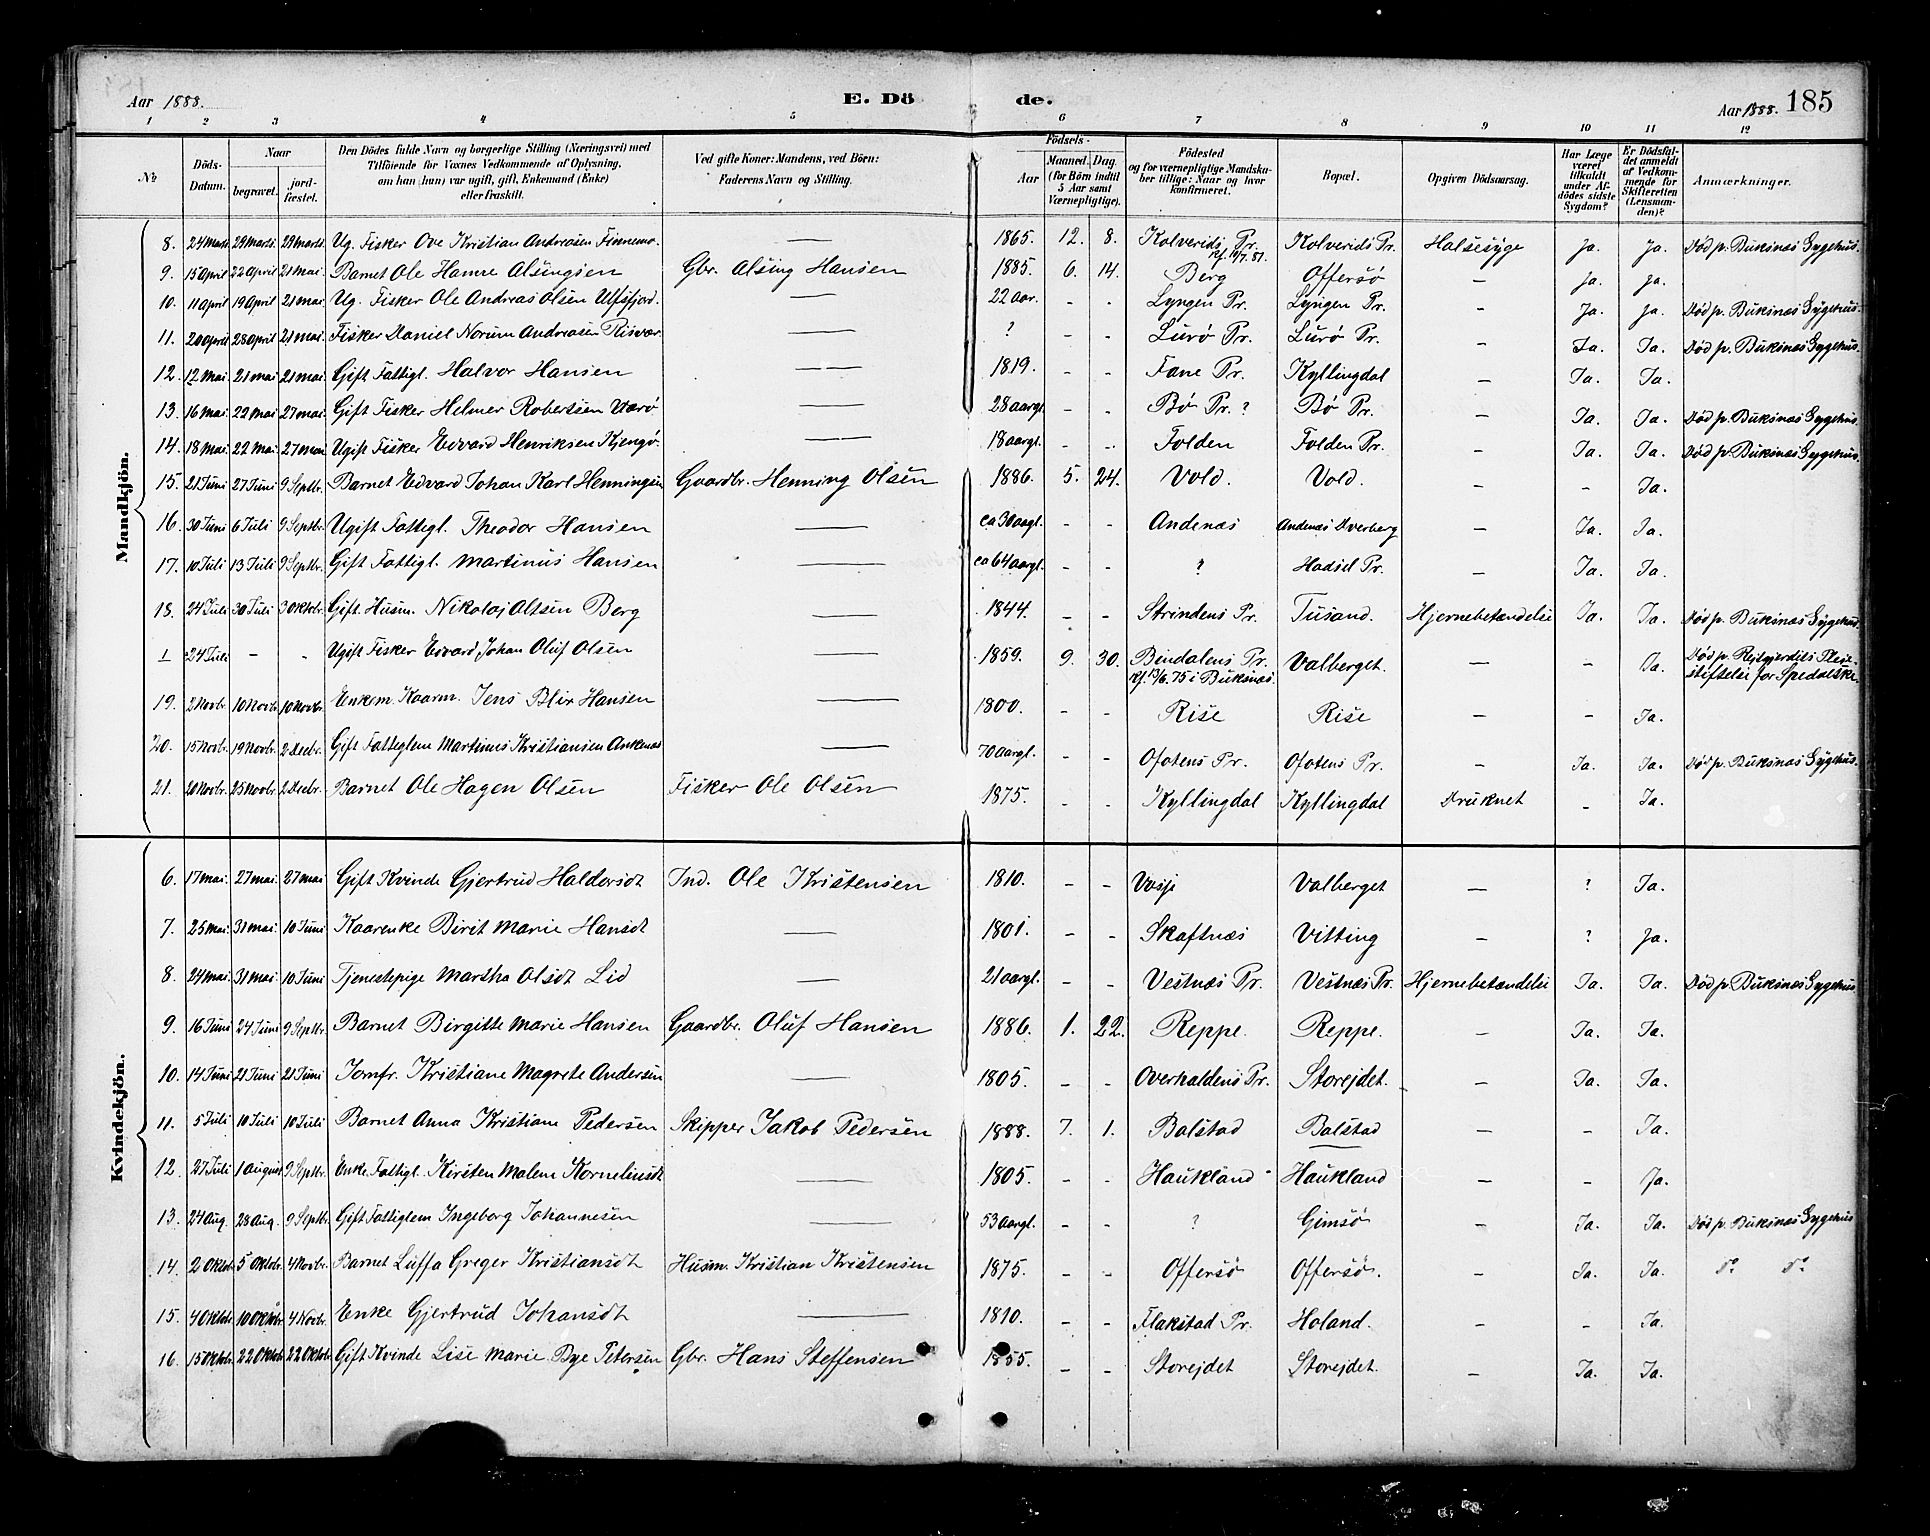 Aar 1888.
E. Dö
de.
Aar 1888. 185
1 2 3 4 5 6 7 8 9 10 11 12
№
Döds-Datum.
Naar
begravet.
jord-fæstet.
Den Dödes fulde Navn og borgerlige Stilling (Næringsvei) med
Tilföiende for Voxnes Vedkommende af Oplysning,
om han (hun) var ugift, gift, Enkemand (Enke)
eller fraskilt.
Ved gifte Koner: Mandens, ved Börn:
Faderens Navn og Stilling.
Födsels-
Aar
Maaned. Dag.
(for Börn indtil
5 Aar samt
Værnepligtige).
Födested
og for værnepligtige Mandska-
ber tillige: Naar og hvor
konfirmeret.
Bopæl.
Opgiven Dödsaarsag.
Har Læge
været
tilkaldt
under Af-
dödes sidste
Sygdom?
Er Dödsfal-
det anmeldt
af Vedkom-
mende for
Skifteretten
(Lensman-
den)?
Anmærkninger.
Mandkjön.
8. 24 Marts 29 Marts 29 Marts Ug. Fisker Ove Kristian Andreasen Finnemo. — 1865. 12. 8. Kolvereids Pr. Kf. 10/7. 81. Kolvereids Pr. Halsesyge Ja. Ja. Död p. Buksnæs Sygehus.
9. 15 April 22 April 21 Mai. Barnet Ole Hamre Alsingsen Gbr. Alsing Hansen 1885. 6. 14. Berg Offersö — Ja. Ja.
10. 11 April 19 April 21 Mai. Ug. Fisker Ole Andreas Olsen Ulfsfjord. — 22 Aar. - - Lyngen Pr. Lyngen Pr. - Ja. Ja. Död p. Buksnæs Sygehus.
11. 20 April 28 April 21 Mai. Fisker Daniel Norum Andreasen Risvær. — ? - - Lurø Pr. Lurø Pr. - Ja. Ja. Död p. Buksnæs Sygehus.
12. 12 Mai. 21 Mai 21 Mai. Gift Fattigl. Halvor Hansen — 1819. - - Fane Pr. Kyllingdal - Ja. Ja.
13. 16 Mai. 22 Mai 27 Mai. Gift Fisker Helmer Robertsen Værö — 28 aargl. - - Bö Pr. ? Bö Pr. - Ja. Ja. Död p. Buksnæs Sygehus.
14. 18 Mai. 22 Mai. 27 Mai Ugift Fisker Edvard Henriksen Kjengö. — 18 aargl. - - Folden Folden Pr. - Ja. Ja. Död p. Buksnæs Sygehus.
15. 21 Juni 27 Juni 9 Septbr. Barnet Edvard Johan Karl Henningsen Gaardbr. Henning Olsen 1886. 5. 24. Vold. Vold. - - Ja.
16. 30 Juni 6 Juli 9 Septbr. Ugift Fattigl. Theodor Hansen — ca 30 aagl. - - Andenæs Andenæs Dverberg - Ja. Ja.
17. 10 Juli 13 Juli 9 Septbr. Gift Fattigl. Martinus Hansen — ca 64 aargl. - - ? Hadsel Pr. - Ja. Ja.
18. 24 Juli 30 Juli 3 Oktbr. Gift. Husm. Nikolaj Olsen Berg — 1844. - - Strindens Pr. Tusand. Hjernebetændelse Ja. Ja. Död p. Buksnæs Sygehus.
I 24 Juli - - Ugift Fisker Edvard Johan Oluf Olsen 1859. 9. 30. Bindalens Pr. Kf. 13/6. 75 i Buksnæs. Valberget. - - Ja. Död p. Rejtgjerdets Pleie-
stiftelse for Spedalske.
19. 2 Novbr. 10 Novbr. 10 Novbr. Enkem. Kaarm. Jens Blix Hansen — 1800. - - Rise Rise - - Ja.
20. 15 Novbr. 19 Novbr. 2 Decbr. Gift Fattiglem Martinus Kristiansen Ankenæs — 70 aargl. - - Ofotens Pr. Ofotens Pr. - Ja. Ja. Död p. Buksnæs Sygehus.
21. 20 Novbr. 25 Novbr. 2 Decbr. Barnet Ole Hagen Olsen Fisker Ole Olsen 1875. - - Kyllingdal Kyllingdal Druknet - Ja.
Kvindekjön.
6. 17 Mai. 27 Mai. 27 Mai Gift Kvinde Gjertrud Haldorsdt Ind. Ole Kristensen 1810. - - Valberget — ? Ja.
7. 25 Mai. 31 Mai. 10 Juni Kaarenke Birit Marie Hansdt — 1801. - - Skaftnæs Vitting - ? Ja.
8. 24 Mai. 31 Mai. 10 Juni Tjenestepige Martha Olsdt Lid — 21 aargl. - - Vestnæs Pr. Vestnæs Pr. Hjernebetændelse Ja. Ja. Död p. Buksnæs Sygehus
9. 16 Juni 24 Juni 9 Septbr. Barnet Birgitte Marie Hansen Gaardbr. Oluf Hansen 1886. 1. 22. Reppe. Reppe. - Ja. Ja.
10. 14 Juni 21 Juni 21 Juni Jomfr. Kristiane Magrete Andersen — 1805. - - Overhaldens Pr. Storejdet. - Ja. Ja.
11. 5 Juli 10 Juli 10 Juli Barnet Anna Kristiane Pedersen Skipper Jakob Pedersen 1888. 7. 1. Balstad Balstad — - Ja.
12. 27 Juli 1 August 9 Septbr. Enke. Fattigl. Kirsten Malem Korneliusdt — 1805. - - Haukland - Haukland - - Ja.
13. 24 Aug. 28 Aug. 9 Septbr. Gift Fattiglem Ingeborg Johannesen — 53 aargl. - - ? Gimsö - Ja. Ja. Död p. Buksnæs Sygehus
14. 2 Oktbr. 5 Oktbr. 4 Novbr. Barnet Luffa Greger Kristiansdt Husm. Kristian Kristensen 1875. - - Offersö Offersö. - Ja. Ja. do do
15. 4 Oktbr. 10 Oktbr. 4 Novbr. Enke Gjertrud Johansdt — 1810. - - Flakstad Pr. Holand. - - Ja.
16. 15 Oktbr. 22 Oktbr. 22 Oktbr. Gift Kvinde Lise Marie Bye Petersen Gbr. Hans Steffensen 1855. - - Storejdet Storejdet. - Ja. Ja.